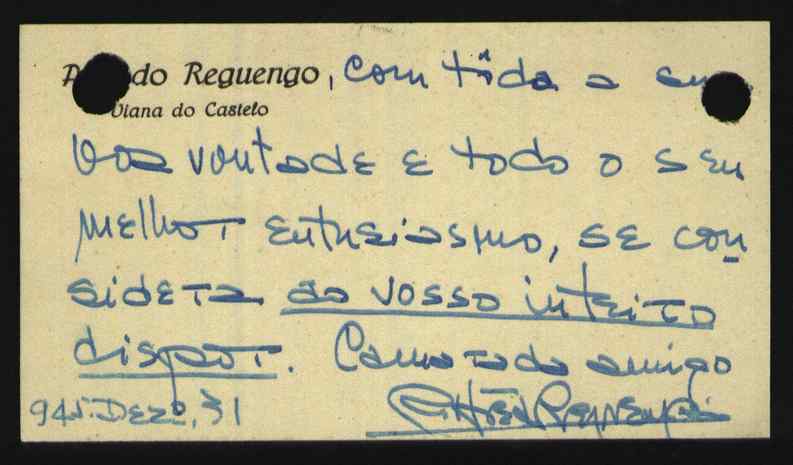 do Reguengo, com tôda a sua
Viana do Castelo
boa vontade e todo o seu
melhor entusiasmo, se con
sidera ao vosso inteiro
dispor. Camarada amigo
945. Dezº, 31